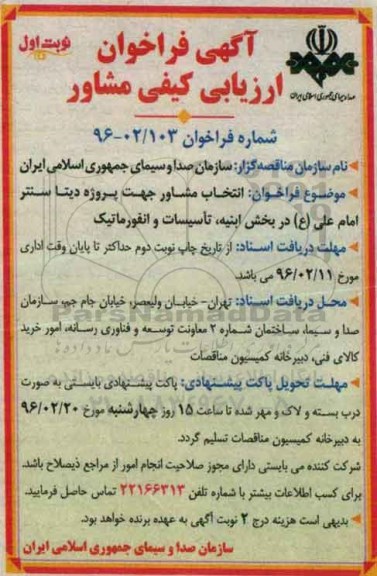 نوبت اول
آگهی فراخوان
ارزیابی کیفی مشاور
صدا و سیمای جمهوری اسلامی ایران
شماره فراخوان ۹۶-۰۲/۱۰۳
نام سازمان مناقصه‌گزار: سازمان صدا و سیمای جمهوری اسلامی ایران
موضوع فراخوان: انتخاب مشاور جهت پروژه دیتا سنتر
امام علی (ع) در بخش ابنیه، تأسیسات و انفورماتیک
مهلت دریافت اسناد: از تاریخ چاپ نوبت دوم حداکثر تا پایان وقت اداری
مورخ ۹۶/۰۲/۱۱ می باشد.
محل دریافت اسناد: تهران- خیابان ولیعصر، خیابان جام جم، سازمان
صدا و سیما، ساختمان شماره ۲ معاونت توسعه و فناوری رسانه، امور خرید
کالای فنی، دبیرخانه کمیسیون مناقصات
مهلت تحویل پاکت پیشنهادی: پاکت پیشنهادی بایستی به صورت
درب بسته و لاک و مهر شده تا ساعت ۱۵ روز چهارشنبه مورخ ۹۶/۰۲/۲۰
به دبیرخانه کمیسیون مناقصات تسلیم گردد.
شرکت کننده می بایستی دارای مجوز صلاحیت انجام امور از مراجع ذیصلاح باشد.
برای کسب اطلاعات بیشتر با شماره تلفن ۲۲۱۶۶۳۱۳ تماس حاصل فرمایید.
بدیهی است هزینه درج ۲ نوبت آگهی به عهده برنده خواهد بود.
سازمان صدا و سیمای جمهوری اسلامی ایران
ParsNamadData